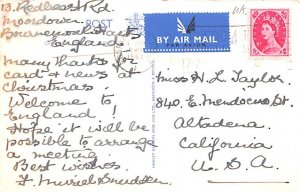 13. Redhurst Rd.
Moordown,
Bournemouth, Hants
England
Many thanks for
card & news at
Christmas.
Welcome to
England!
Hope it will be
possible to arrange
a meeting.
Best wishes.
F. Muriel
POST
BY AIR MAIL
PAR AVION
Miss H. L. Taylor
840 E. Mendocino St.
Altadena
California
U. S. A.